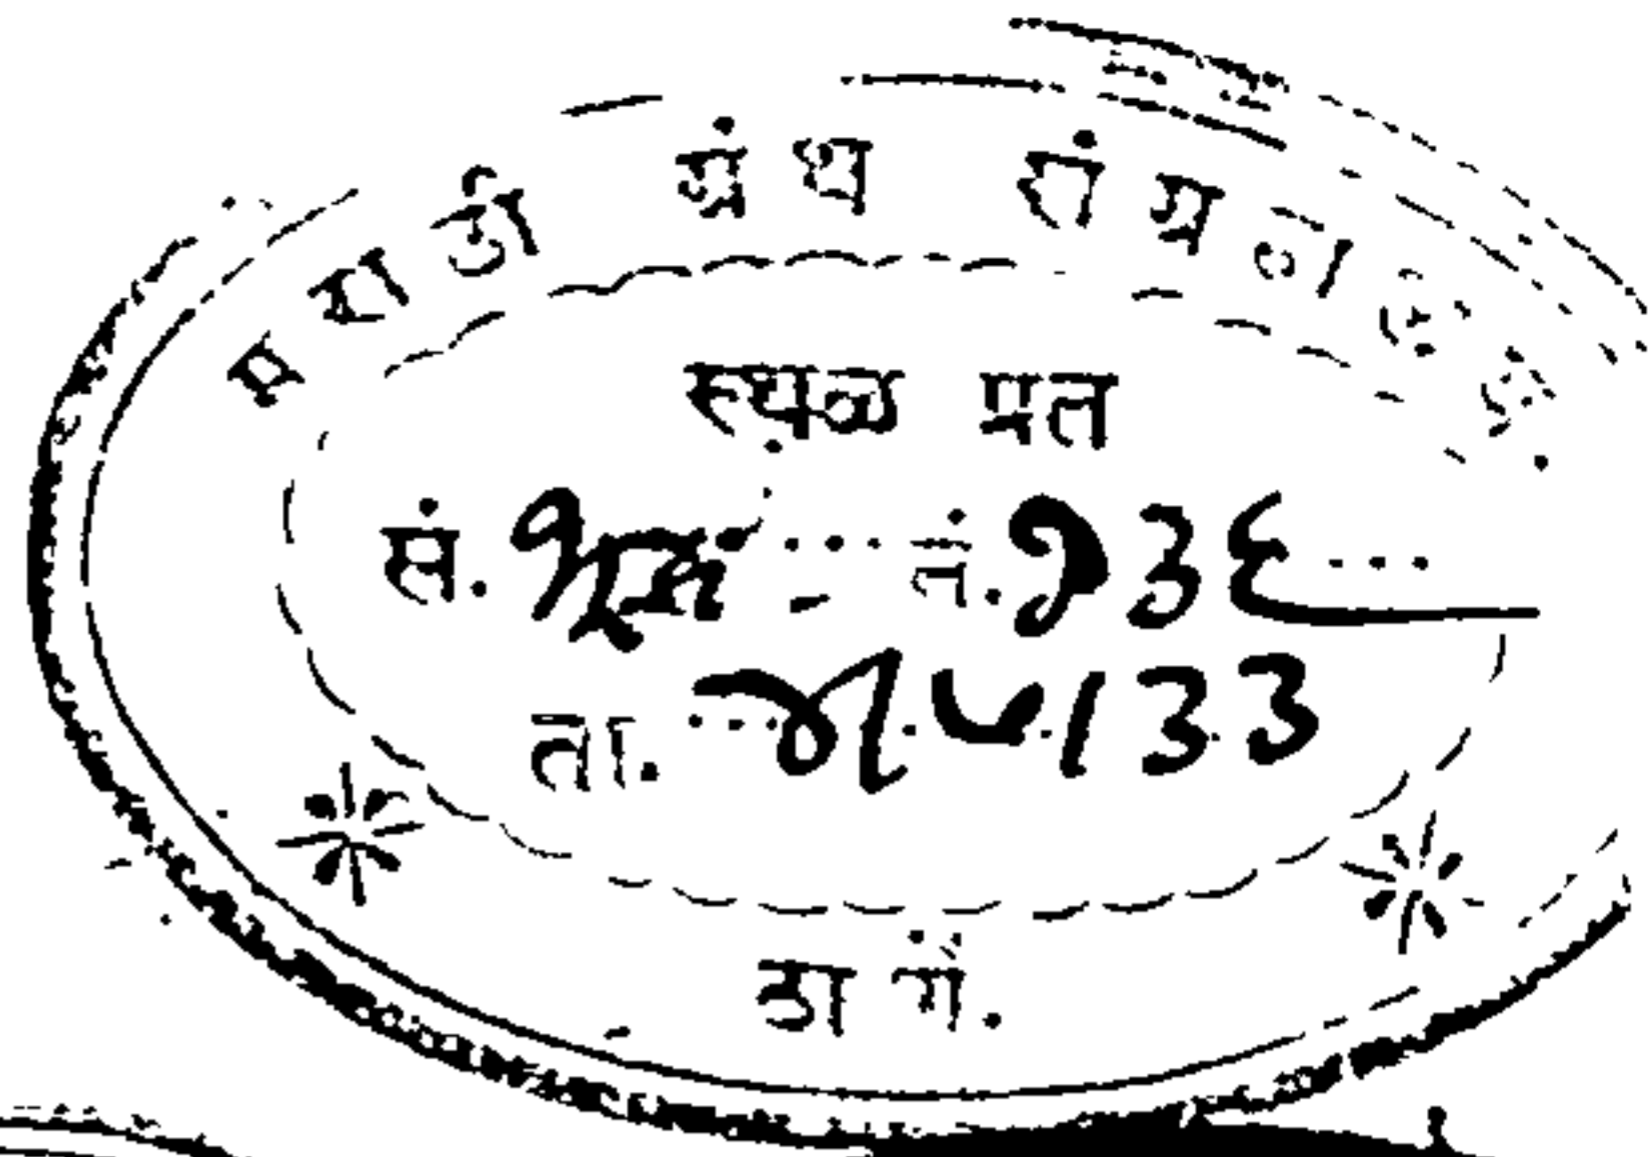 मराठी ग्रंथ संग्रहालय.
स्थळ प्रत
सं. ... नं. १३६ ...
ता. ... ५।३३
ठाणें.